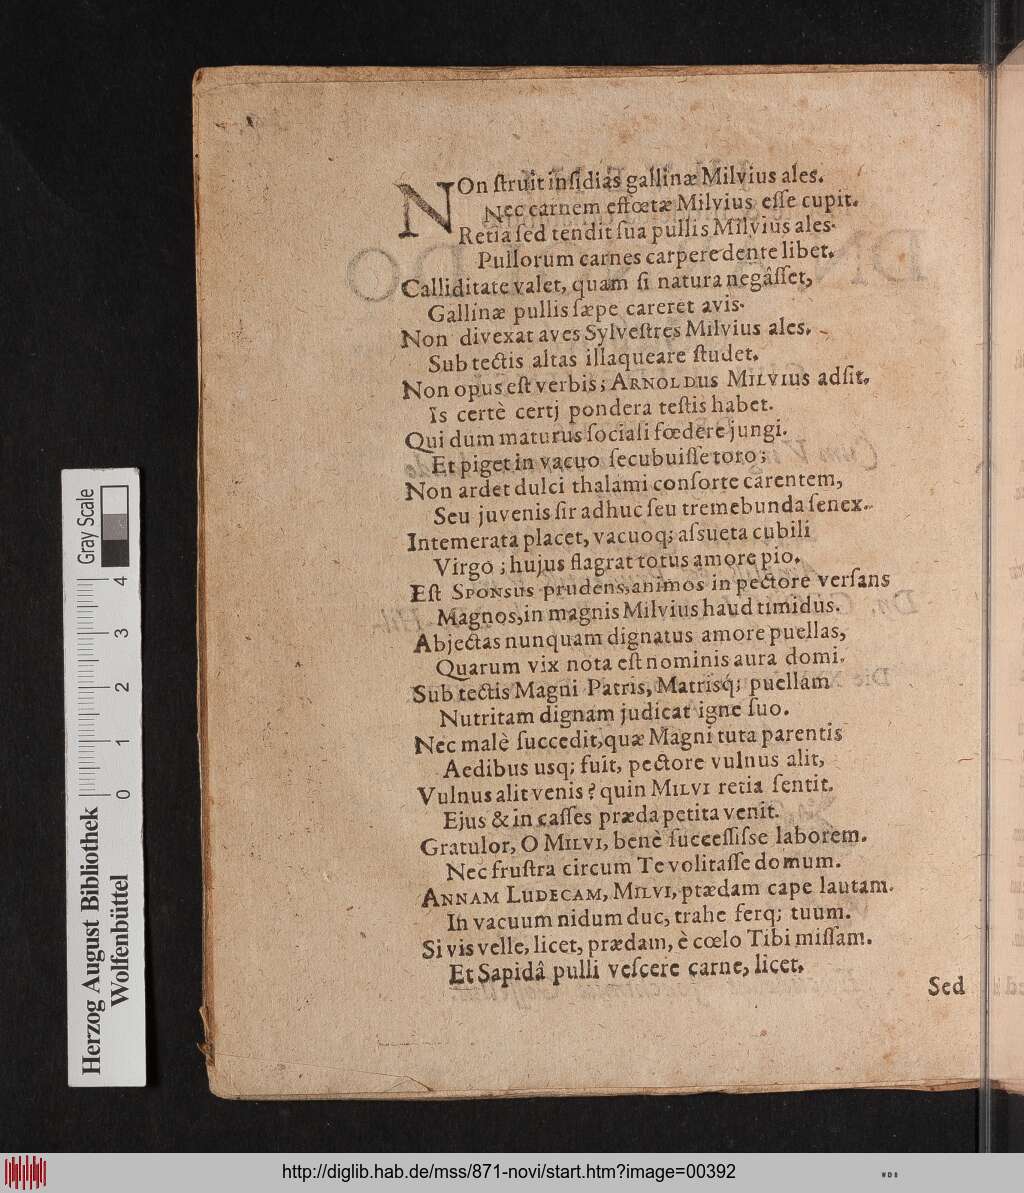 NOn ſtruit inſidias gallinæ Milvius ales.
Nec carnem effœtæ Milvius eſſe cupit.
Retia ſed tendit ſua pullis Milvius ales.
Pullorum carnes carpere dente libet.
Calliditate valet, quam ſi natura negâſſet,
Gallinæ pullis ſæpe careret avis.
Non divexat aves Sylveſtres Milvius ales.
Sub tectis altas illaqueare ſtudet.
Non opus eſt verbis; ARNOLDUS MILVIUS adſit.
Is certè certj pondera teſtis habet.
Qui dum maturus ſociali fœdere jungi.
Et piget in vacuo ſecubuiſſe toro;
Non ardet dulci thalami conſorte carentem,
Seu juvenis ſir adhuc ſeu tremebunda ſenex.
Intemerata placet, vacuoq; aſsueta cubili
Virgo; hujus flagrat totus amore pio.
Eſt SPONSUS prudens, animos in pectore verſans
Magnos, in magnis Milvius haud timidus.
Abjectas nunquam dignatus amore puellas,
Quarum vix nota eſt nominis aura domi.
Sub tectis Magni Patris, Matrisq́; puellam
Nutritam dignam judicat igne ſuo.
Nec malè ſuccedit, quæ Magni tuta parentis
Aedibus usq; fuit, pectore vulnus alit,
Vulnus alit venis? quin MILVI retia ſentit.
Ejus & in caſſes præda petita venit.
Gratulor, O MILVI, benè ſucceſſiſse laborem.
Nec fruſtra circum Te volitaſſe domum.
ANNAM LUDECAM, MILVI, ptædam cape lautam.
In vacuum nidum duc, trahe ferq; tuum.
Si vis velle, licet, prædam, è cœlo Tibi miſſam.
Et Sapidâ pulli veſcere carne, licet.
Sed
Gray Scale
4 3 2 1 0
Herzog August Bibliothek
Wolfenbüttel
http://diglib.hab.de/mss/871-novi/start.htm?image=00392